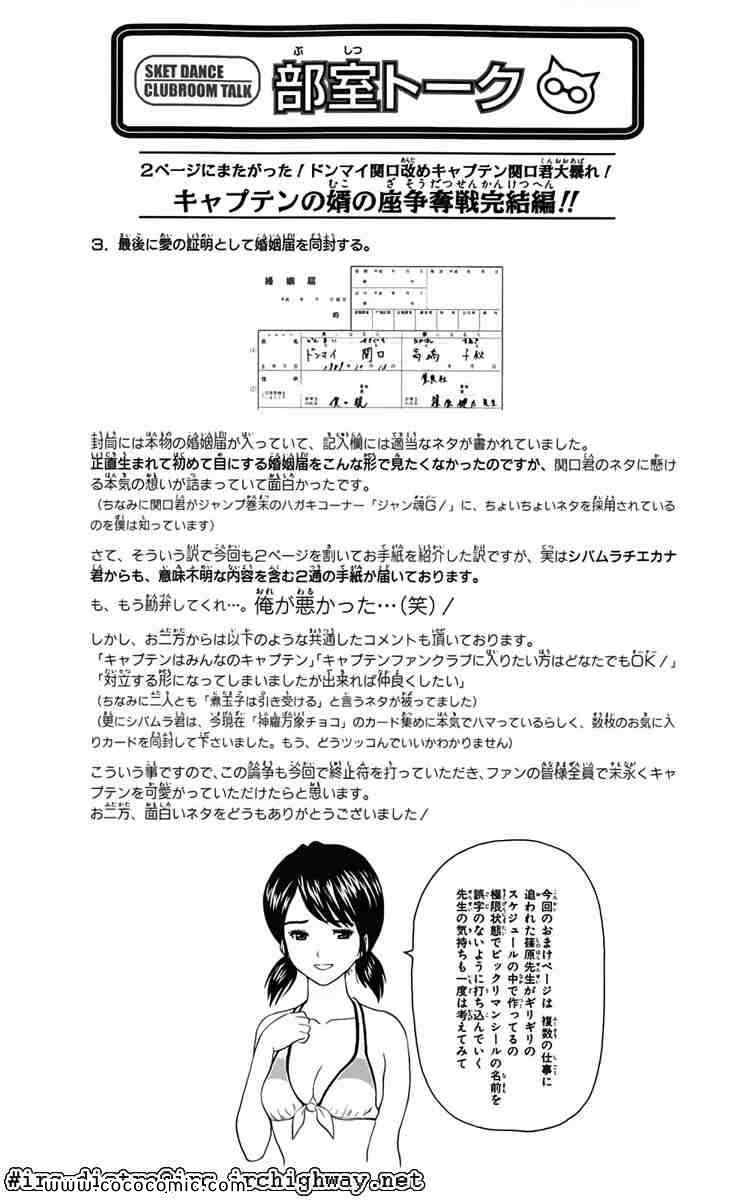 SKET DANCE
CLUBROOM TALK
部室トーク
2ページにまたがった!ドンマイ関口改めキャプテン関口君大暴れ!
キャプテンの婿の座争奪戦完結編!!
3. 最後に愛の証明として婚姻届を同封する。
婚姻届
ドンマイ 関口 高崎 千秋
封筒には本物の婚姻届が入っていて、記入欄には適当なネタが書かれていました。
正直生まれて初めて目にする婚姻届をこんな形で見たくなかったのですが、関口君のネタに懸け
る本気の想いが詰まっていて面白かったです。
(ちなみに関口君がジャンプ巻末のハガキコーナー「ジャン魂G!」に、ちょいちょいネタを採用されている
のを僕は知っています)
さて、そういう訳で今回も2ページを割いてお手紙を紹介した訳ですが、実はシバムラチエカナ
君からも、意味不明な内容を含む2通の手紙が届いております。
も、もう勘弁してくれ…。俺が悪かった…(笑)!
しかし、お二方からは以下のような共通したコメントも頂いております。
「キャプテンはみんなのキャプテン」「キャプテンファンクラブに入りたい方はどなたでもOK!」
「対立する形になってしまいましたが出来れば仲良くしたい」
(ちなみに二人とも「煮玉子は引き受ける」と言うネタが被ってました)
(更にシバムラ君は、今現在「神羅万象チョコ」のカード集めに本気でハマっているらしく、数枚のお気に入
りカードを同封して下さいました。もう、どうツッコんでいいかわかりません)
こういう事ですので、この論争も今回で終止符を打っていただき、ファンの皆様全員で末永くキャ
プテンを可愛がっていただけたらと思います。
お二方、面白いネタをどうもありがとうございました!
今回のおまけページは 複数の仕事に
追われた篠原先生がギリギリの
スケジュールの中で作ってるの
極限状態でビックリマンシールの名前を
誤字のないように打ち込んでいく
先生の気持ちも一度は考えてみて
#irc-distro@irc.irchighway.net
www.cococomic.com